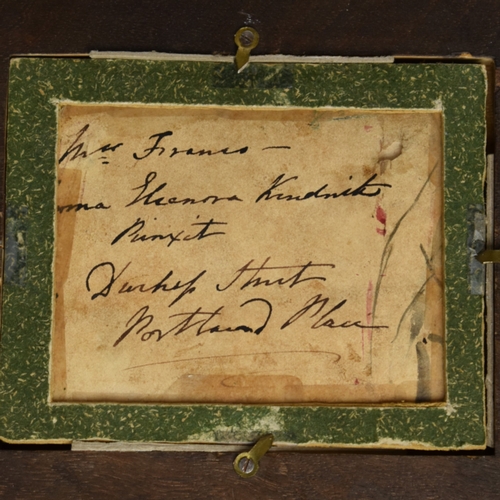 Mrs Franco —
ma Eleonora Kendrick
Pinxit
Duchess Street
Portland Place